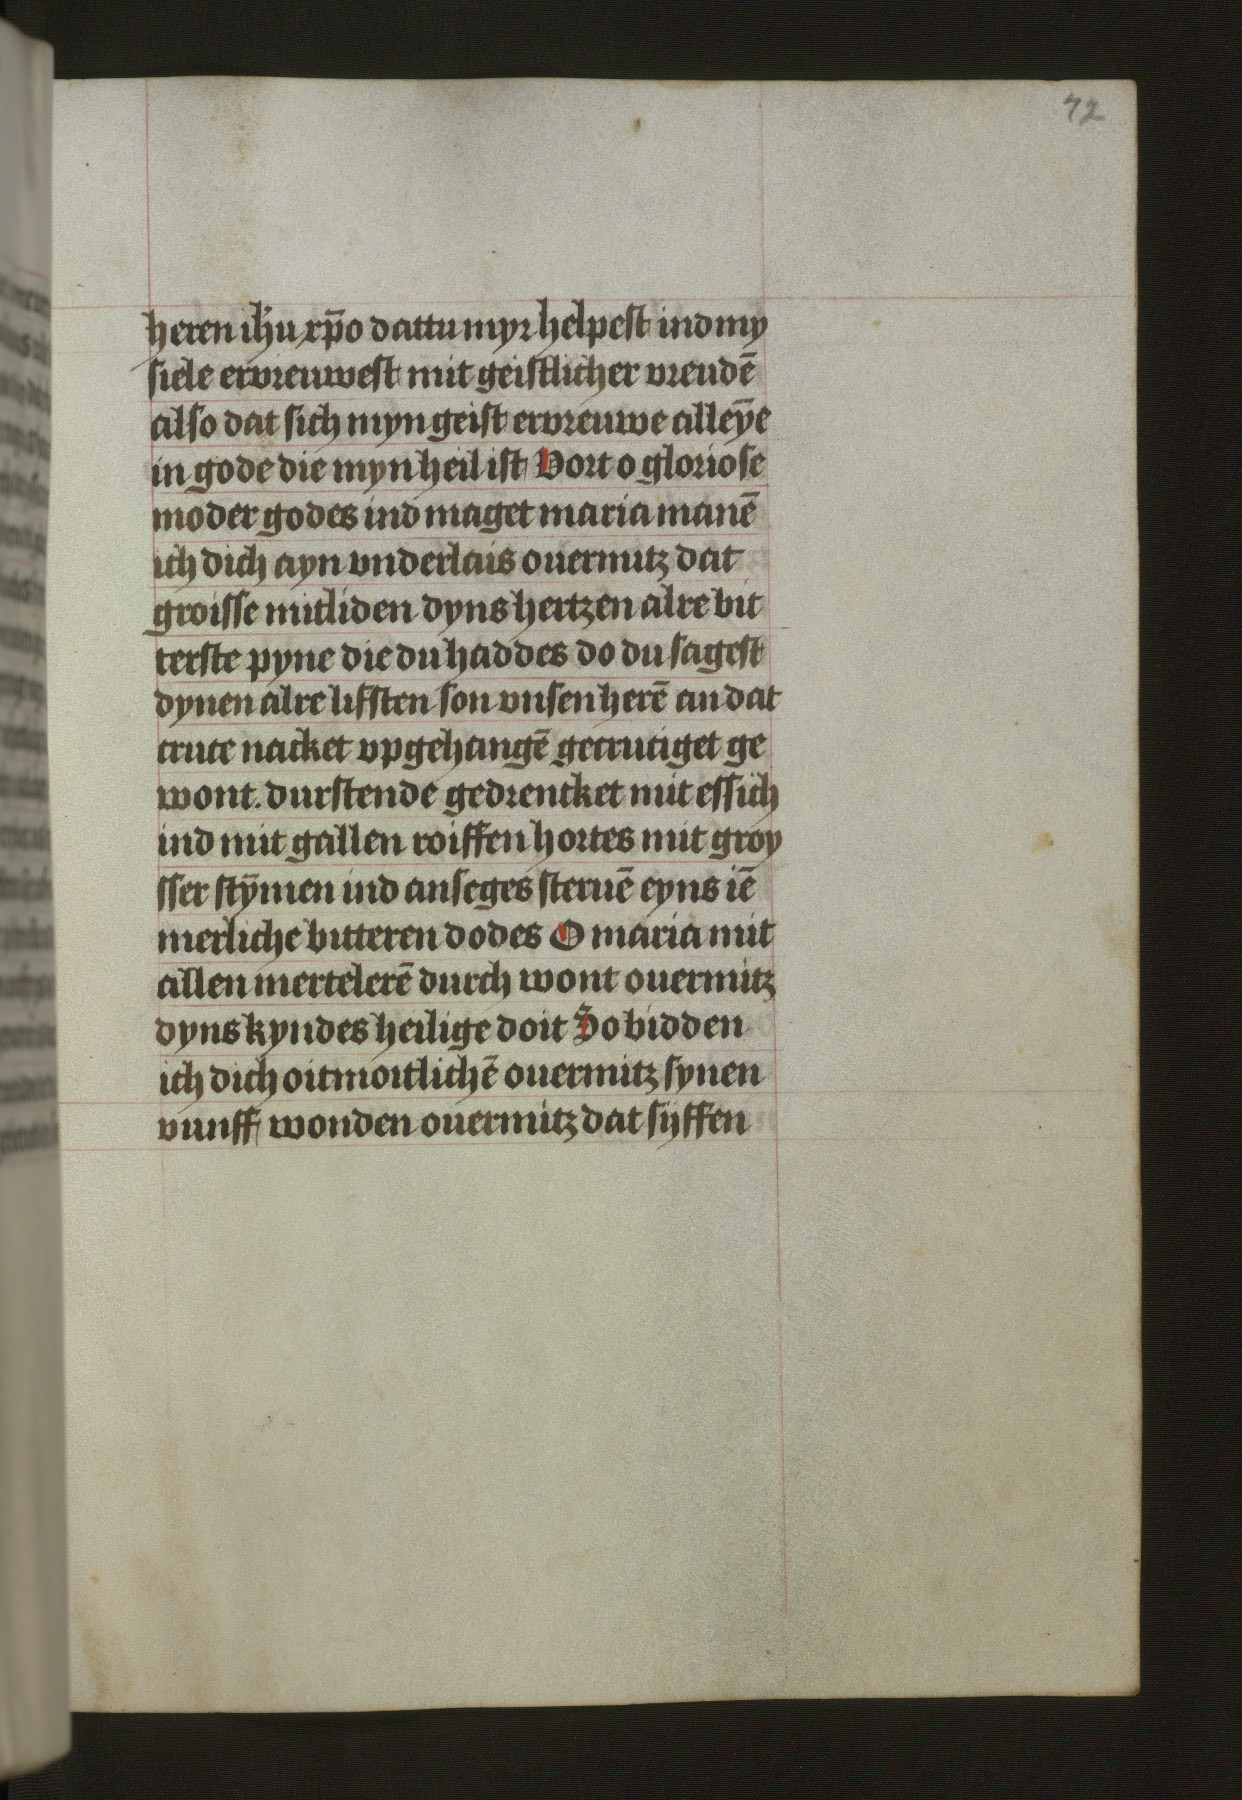 72
heren ih̄u xp̄o dattu myr helpest ind my
siele ervreuwest mit geistlicher vreudē
also dat sich myn geist ervreuwe alleȳe
in gode die myn heil ist Vort o gloriose
moder godes ind maget maria manē
ich dich ayn vnderlais ouermitz dat
groisse mitliden dyns hertzen alre bit
terste pyne die du haddes do du sagest
dynen alre lifsten son vnsen herē an dat
cruce nacket vpgehangē gecruciget ge
wont. durstende gedrencket mit essich
ind mit gallen roiffen hortes mit groy
sser stȳmen ind anseges steruē eyns iē
merliche bitteren dodes O maria mit
allen mertelerē durch wont ouermitz
dyns kyndes heilige doit So bidden
ich dich oitmoitlichē ouermitz synen
vunff wonden ouermitz dat syffen